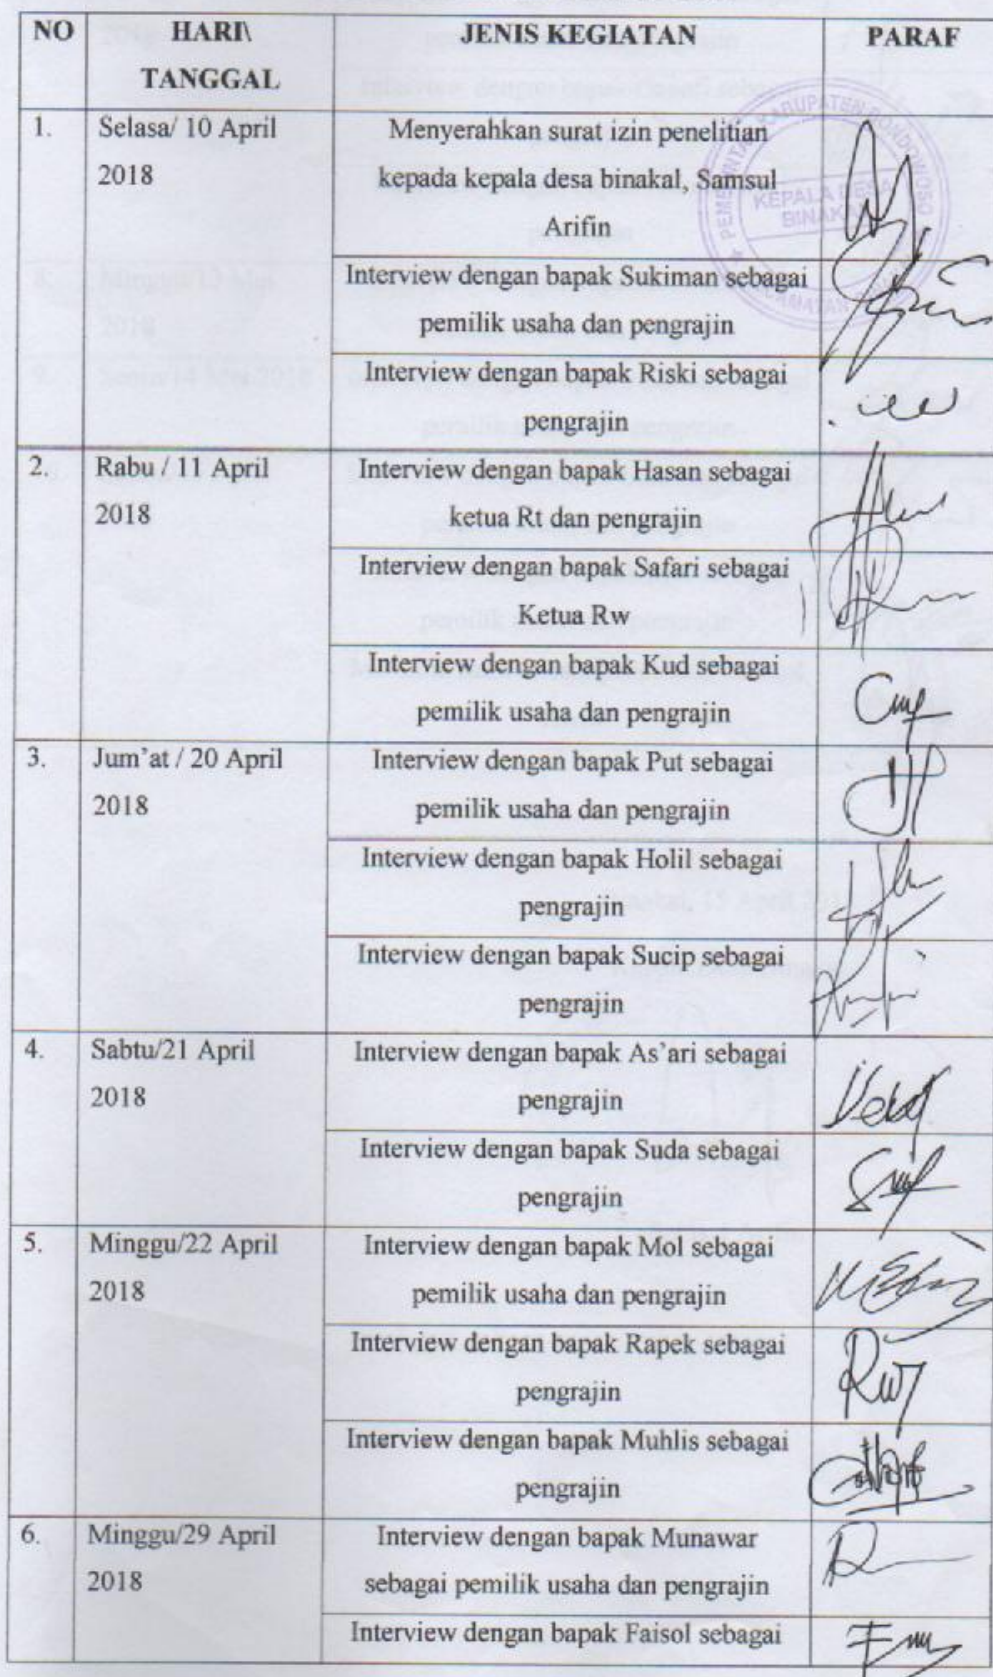 NO HARI\ JENIS KEGIATAN PARAF
TANGGAL
1. Selasa/ 10 April Menyerahkan surat izin penelitian
2018 kepada kepala desa binakal, Samsul
Arifin
PEMERINTAH KABUPATEN BONDOWOSO
KEPALA DESA
BINAKAL
Interview dengan bapak Sukiman sebagai
pemilik usaha dan pengrajin
Interview dengan bapak Riski sebagai
pengrajin
2. Rabu / 11 April Interview dengan bapak Hasan sebagai
2018 ketua Rt dan pengrajin
Interview dengan bapak Safari sebagai
Ketua Rw
Interview dengan bapak Kud sebagai
pemilik usaha dan pengrajin
3. Jum'at / 20 April Interview dengan bapak Put sebagai
2018 pemilik usaha dan pengrajin
Interview dengan bapak Holil sebagai
pengrajin
Interview dengan bapak Sucip sebagai
pengrajin
4. Sabtu/21 April Interview dengan bapak As'ari sebagai
2018 pengrajin
Interview dengan bapak Suda sebagai
pengrajin
5. Minggu/22 April Interview dengan bapak Mol sebagai
2018 pemilik usaha dan pengrajin
Interview dengan bapak Rapek sebagai
pengrajin
Interview dengan bapak Muhlis sebagai
pengrajin
6. Minggu/29 April Interview dengan bapak Munawar
2018 sebagai pemilik usaha dan pengrajin
Interview dengan bapak Faisol sebagai